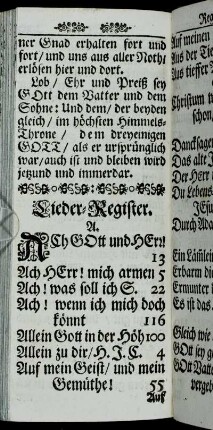 ner Gnad erhalten fort und
fort/ und uns aus aller Noth:
erlösen hier und dort.
Lob / Ehr und Preiß sey
GOtt dem Vatter und dem
Sohne: Und dem/ der beyden
gleich/ im höchsten Himmels-
Throne / dem dreyeinigen
GOTT/ als er ursprünglich
war/ auch ist und bleiben wird
jetzund und immerdar.
Lieder-Register.
A.
ACh GOtt und HErr!
13
Ach HErr! mich armen 5
Ach! was soll ich S. 22
Ach ! wenn ich mich doch
könnt 116
Allein Gott in der Höh 100
Allein zu dir/ H. J. C. 4
Auf mein Geist/ und mein
Gemüthe! 55
Auf
Reg
Auf meinen
Aus der Tie
Aus tieffer
Christum
schon,
Dancksage
Das alte J
Der HErr
Du Lebens
JEsu
Durch Ada
Ein Lämlei
Erbarm di
Ermunter
Es ist das
Gleich wie
GOtt sey g
GOtt Vatte
vergeb